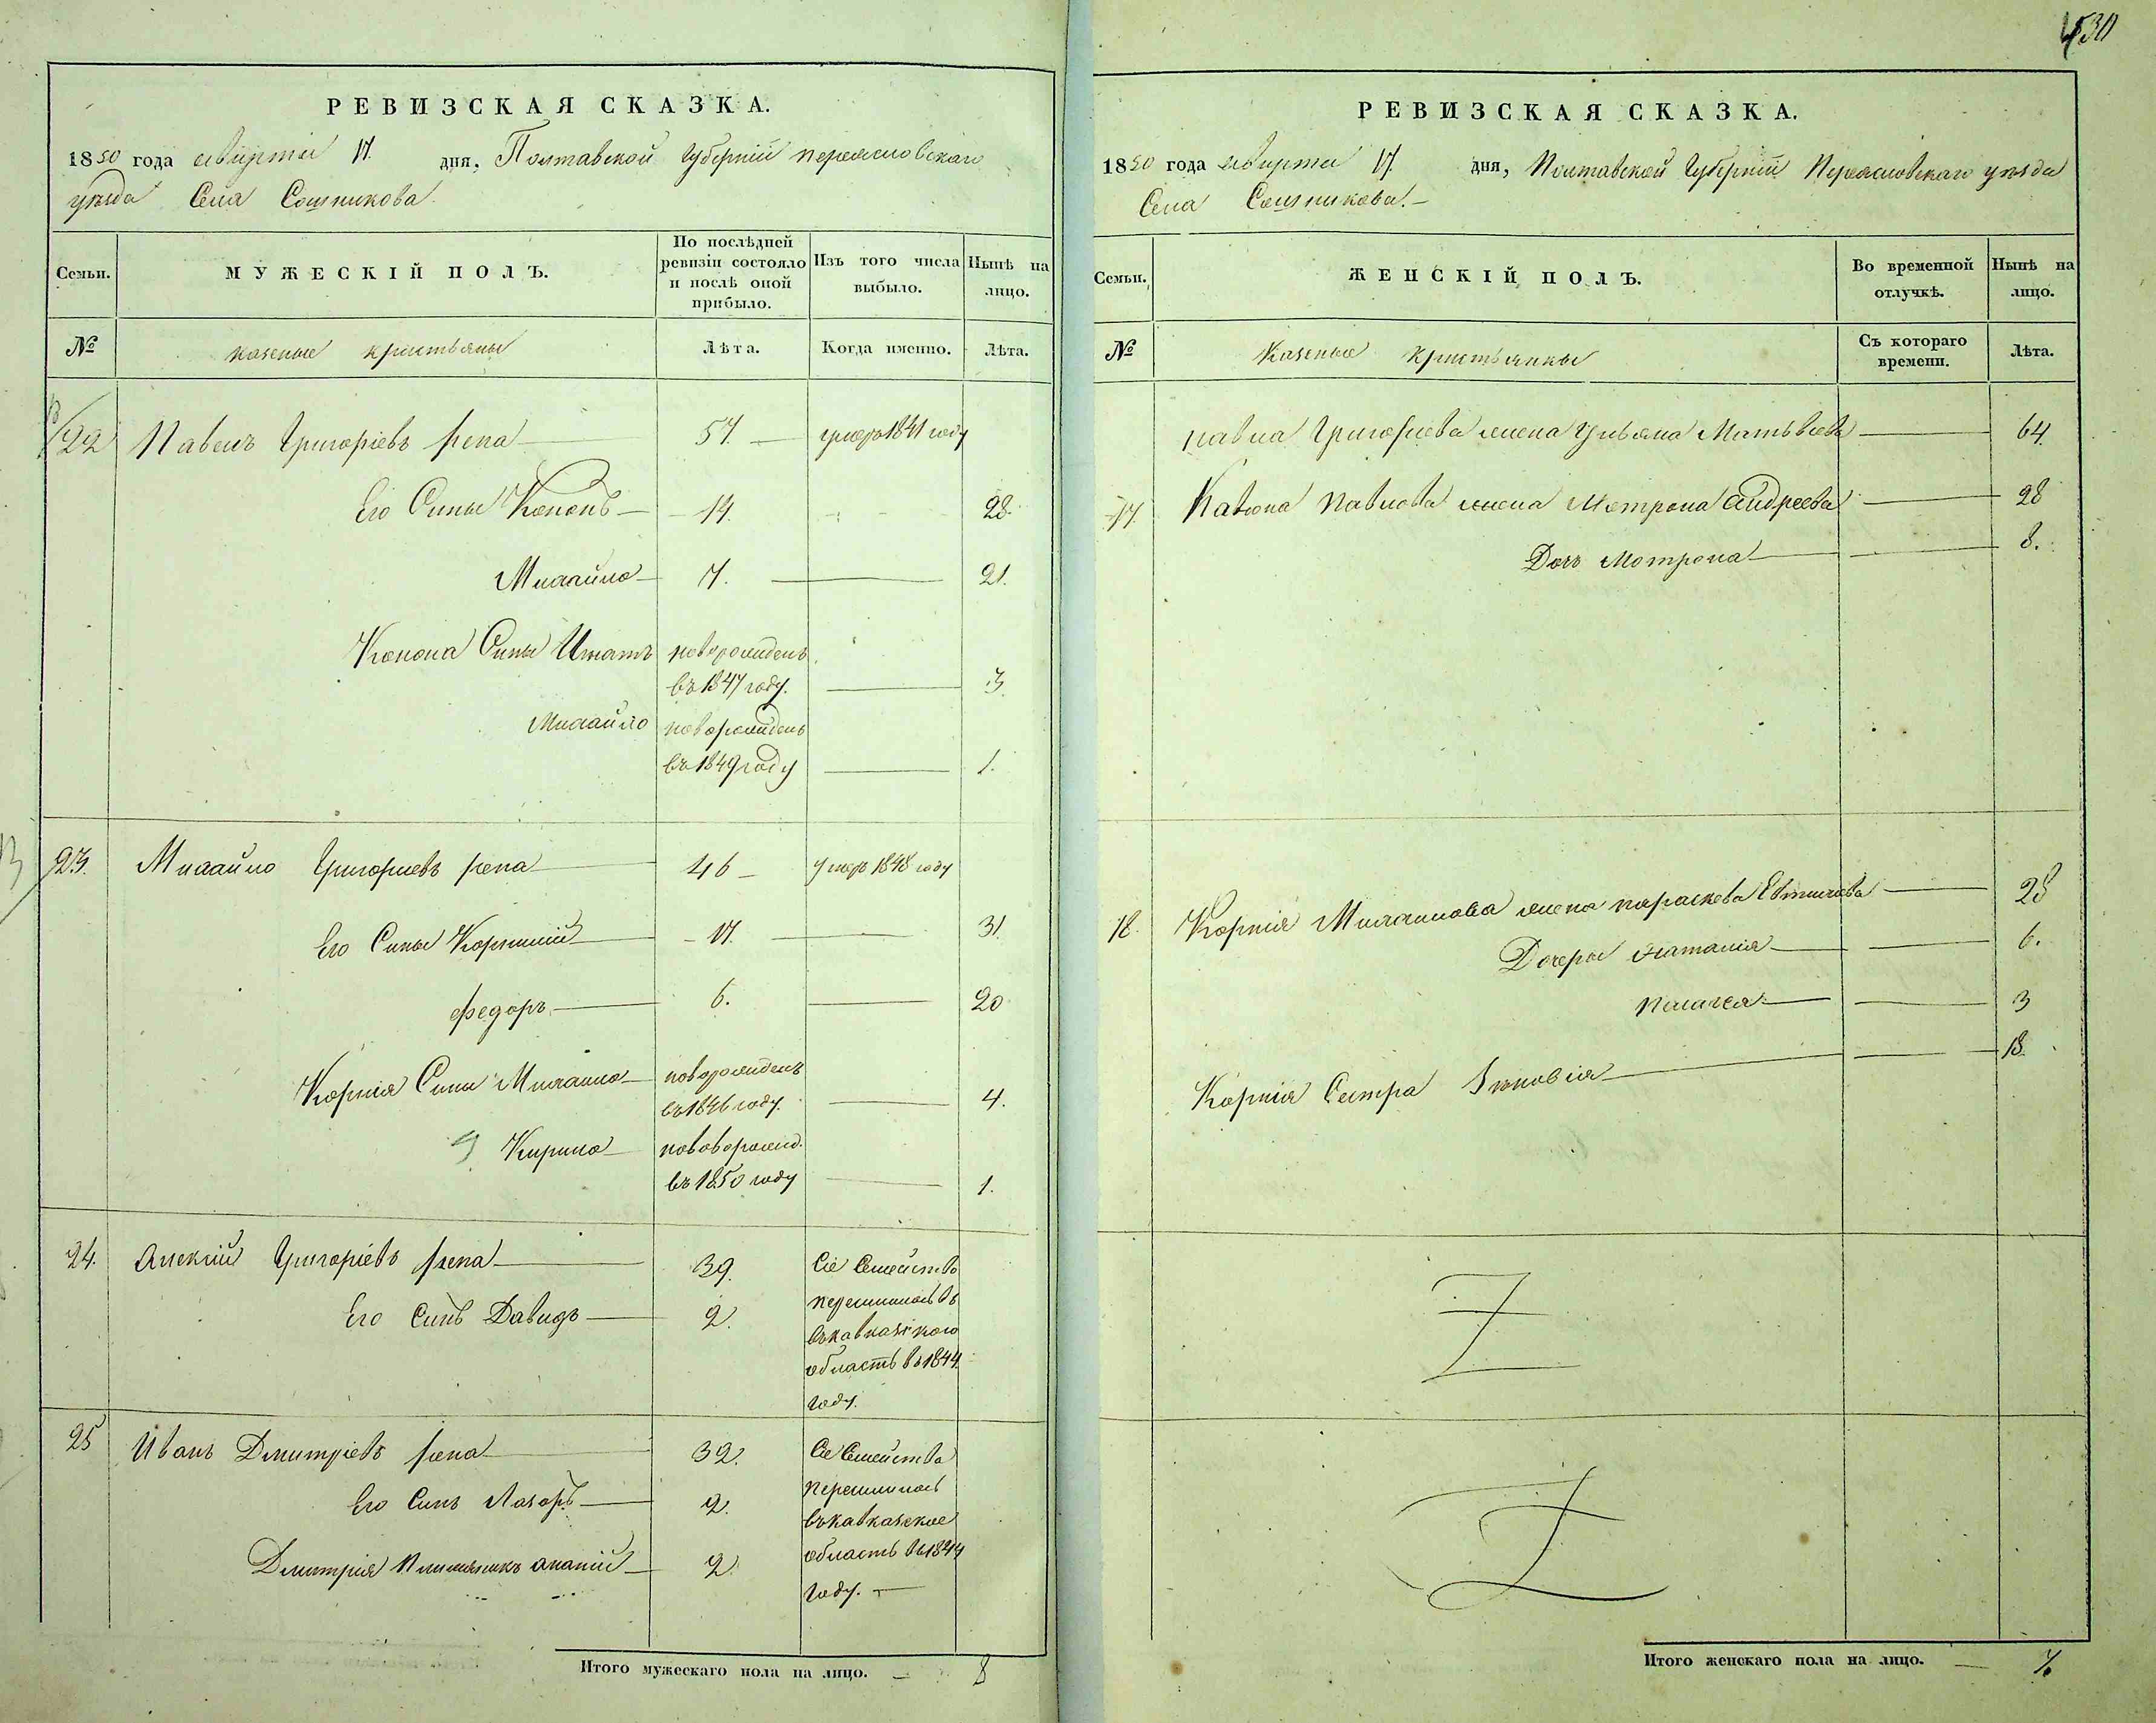 530
РЕВИЗСКАЯ СКАЗКА.
1850 года августа 17. дня, Полтавской Губерніи переясловскаго
уезда Села Сошникова.
Семьи.
МУЖЕСКІЙ ПОЛЪ.
По послѣдней ревизіи состояло и послѣ оной прибыло.
Изъ того числа выбыло.
Нынѣ на лицо.
№
казеные крестьяны
Лѣта.
Когда именно.
Лѣта.
22 Павелъ Григоріевъ репа 57. умеръ 1841 году
Его Сины Кононъ 14. 28.
Михайло 7. 21.
Конона Сины Игнатъ новорожденъ
въ 1847 году. 3.
Михайло новорожденъ
въ 1849 году 1.
23. Михайло Григориевъ репа 46 умеръ 1848 году
Его Сины Корнилій 17. 31.
федоръ 6. 20
Корнія Сины Михаило новорожденъ
въ 1846 году. 4.
Кирило нововорожд.
въ 1850 году 1.
24. Алексій Григоріевъ репа 39. Сіе Семейство
Его Синъ Давидъ 2. переселилось въ
въкавказского
область въ 1844
году.
25 Иванъ Дмитріевъ репа 32. Сіе Семейства
Его Синъ Лазоръ 2. переселилось
въкавказское
Дмитрія племяникъ ананій 2. область въ 1844
году.
Итого мужескаго пола на лицо. 8
РЕВИЗСКАЯ СКАЗКА.
1850 года августа 17. дня, Полтавской Губерніи Переясловскаго уезда
Села Сошникова.
Семьи.
ЖЕНСКІЙ ПОЛЪ.
Во временной отлучкѣ.
Нынѣ на лицо.
№
Казеные Крестьянкы
Съ котораго времени.
Лѣта.
павла Григориева жена Ульяна Матьвіева 64
17. Конона павлова жена Мотрона андреева 28
Дочь Мотрона 8.
18. Корнія Михаилова жена параскева Евтихіева 28
Дочеры наталія 6.
3
Корнія Сестра Зѣновія 18.
Итого женскаго пола на лицо. 7.